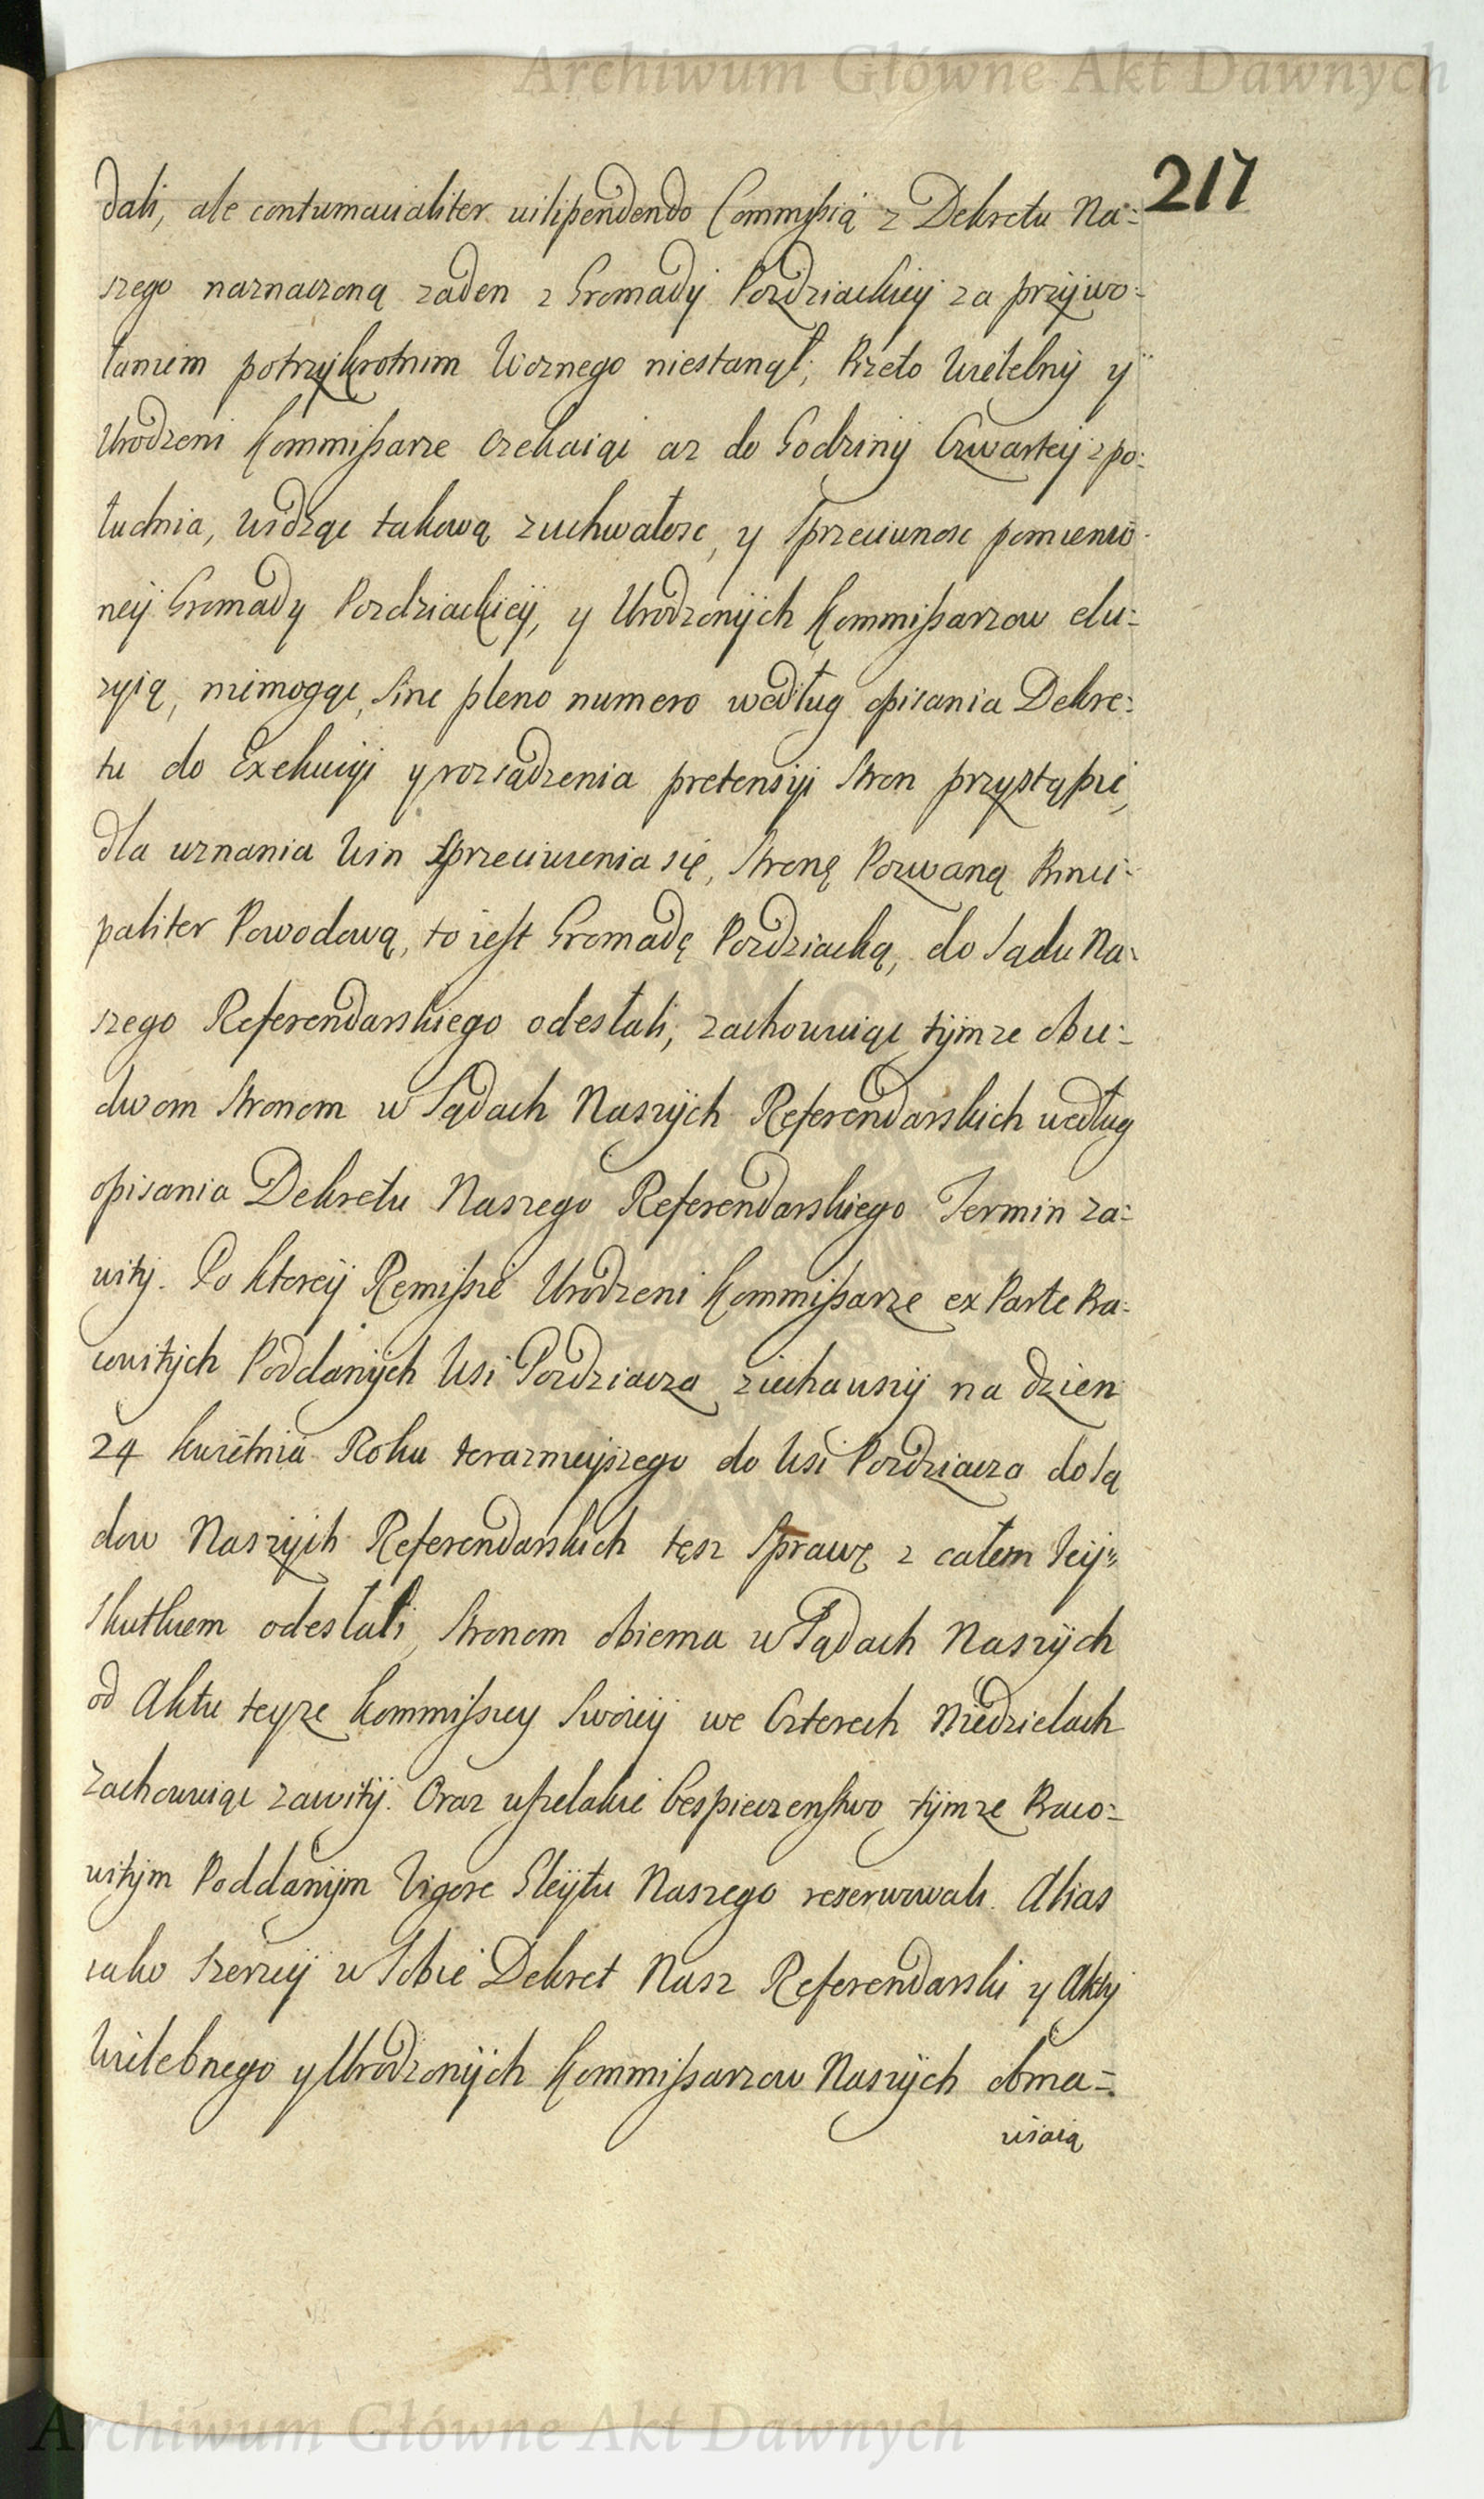 Archiwum Główne Akt Dawnych
217
dali, ale contumacialiter vilipendendo Commissią z Dekretu Na=
szego naznaczoną zaden z Gromady Pozdziackiey za przywo=
łaniem potrzykrotnim Woznego niestanął; Przeto Wielebny y
Urodzeni Kommissarze czekaiąc az do Godziny Czwartey zpo=
łudnia, widząc takową zuchwałosc, y sprzeciwnosc pomienio=
ney Gromady Pozdziackiey, y Urodzonych Kommissarzow elu=
zyią, niemogąc, sine pleno numero według opisania Dekre=
tu do Exekucyi y rozsądzenia pretensyi stron przystąpic,
dla uznania Win sprzeciwienia się, stronę Pozwaną Princi=
paliter Powodową, to iest Gromadę Pozdziacką, do Sądu Na=
szego Referendarskiego odesłali; zachowuiąc tymze obu=
dwom stronom w Sądach Naszych Referendarskich według
opisania Dekretu Naszego Referendarskiego Termin za=
wity. Po ktorey Remissie Urodzeni Kommissarze ex Parte Pra=
cowitych Poddanych Wsi Pozdziacza ziechawszy na dzien
24 kwietnia Roku teraznieyszego do Wsi Pozdziacza do Są
dow Naszych Referendarskich tęsz sprawę z całem iey=
skutkiem odesłali, stronom obiema w Sądach Naszych
od Aktu teyze Kommissyey swoiey we Czterech Niedzielach
zachowuiąc zawity. Oraz wszelakie bespieczenstwo tymze Praco=
witym Poddanym Vigore Gleytu Naszego reserwowali. Alias
iako szerzey w sobie Dekret Nasz Referendarski y Akty
Wielebnego y Urodzonych Kommissarzow Naszych obma=
wiaią
Archiwum Główne Akt Dawnych